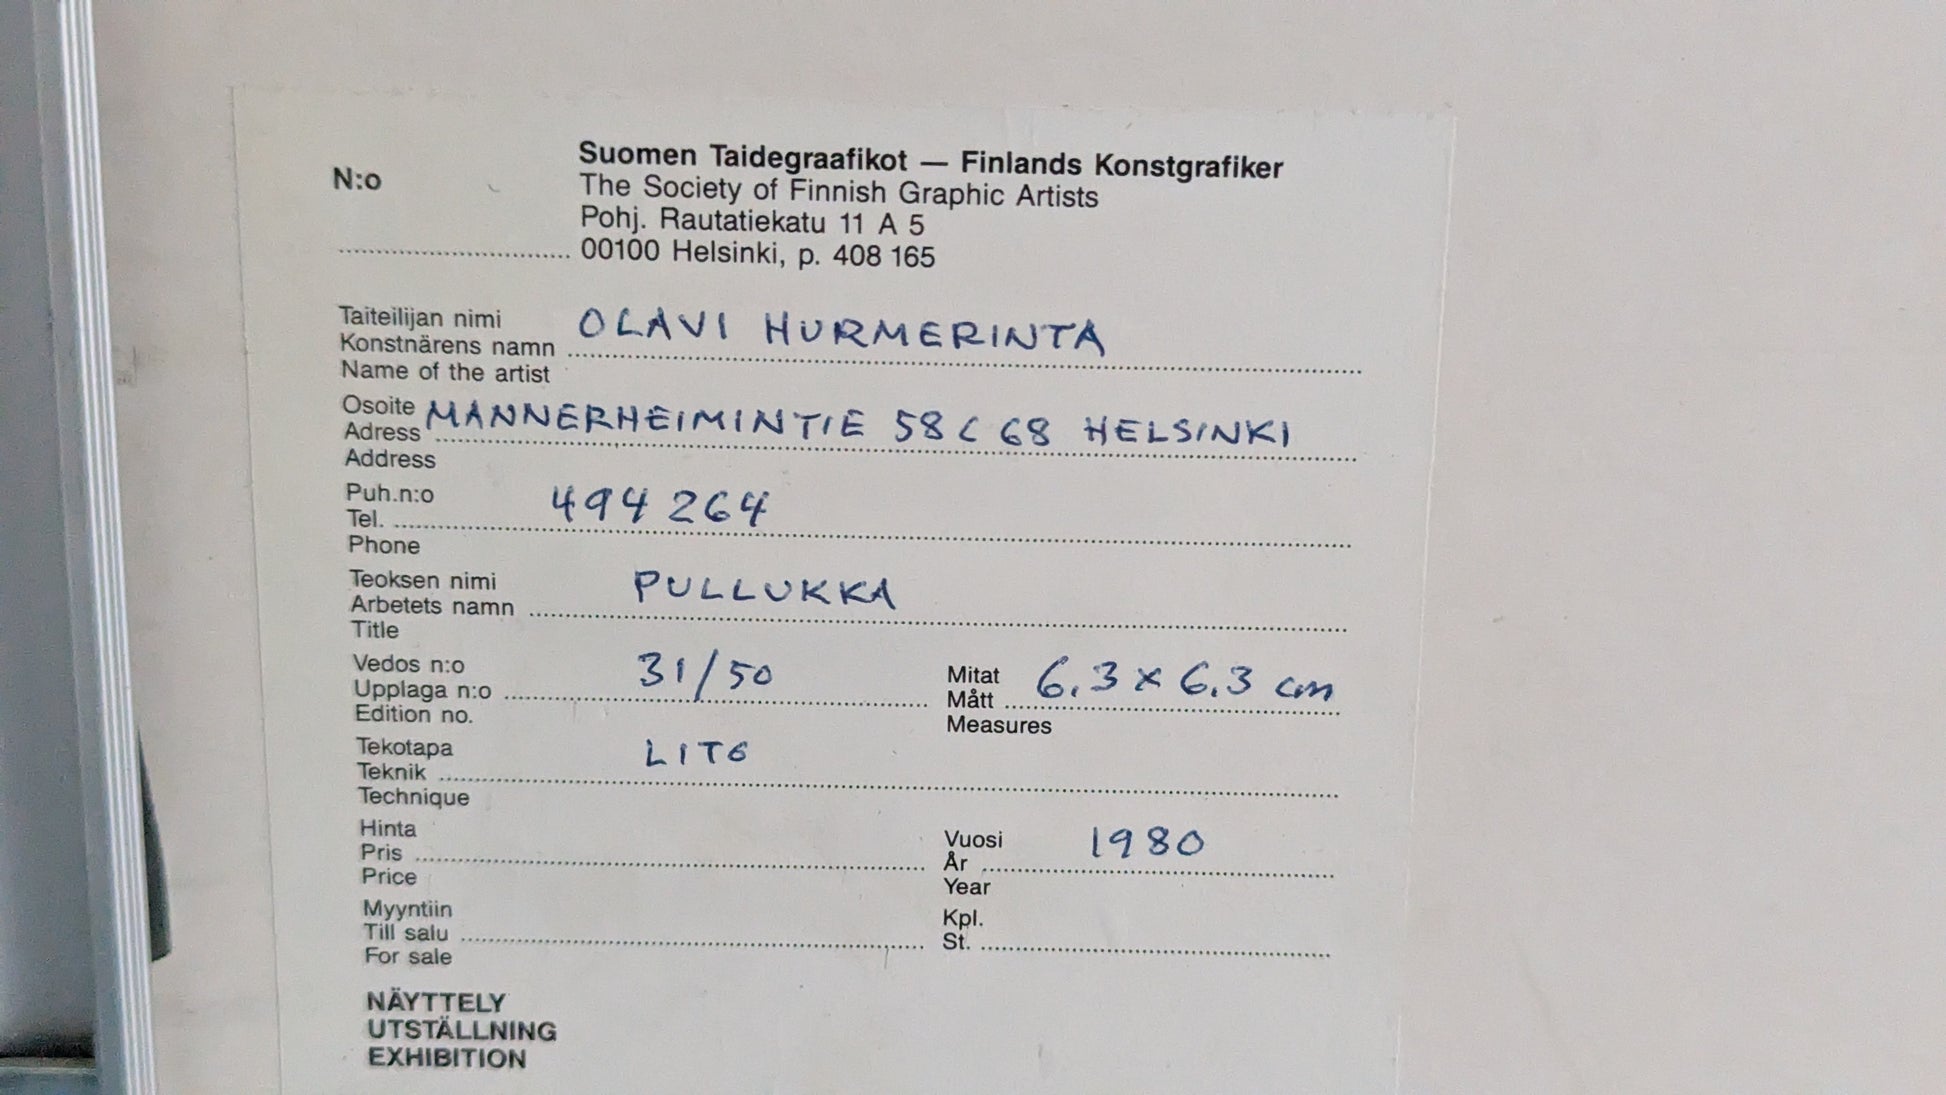 Suomen Taidegraafikot — Finlands Konstgrafiker
N:o
The Society of Finnish Graphic Artists
Pohj. Rautatiekatu 11 A 5
00100 Helsinki, p. 408 165
Taiteilijan nimi
Konstnärens namn OLAVI HURMERINTA
Name of the artist
Osoite
Adress MANNERHEIMINTIE 58 C 68 HELSINKI
Address
Puh.n:o
Tel. 494 264
Phone
Teoksen nimi
Arbetets namn PULLUKKA
Title
Vedos n:o
Upplaga n:o 31/50
Edition no.
Mitat
Mått 6,3 x 6,3 cm
Measures
Tekotapa
Teknik LITO
Technique
Hinta
Pris
Price
Vuosi
År 1980
Year
Myyntiin
Till salu
For sale
Kpl.
St.
NÄYTTELY
UTSTÄLLNING
EXHIBITION